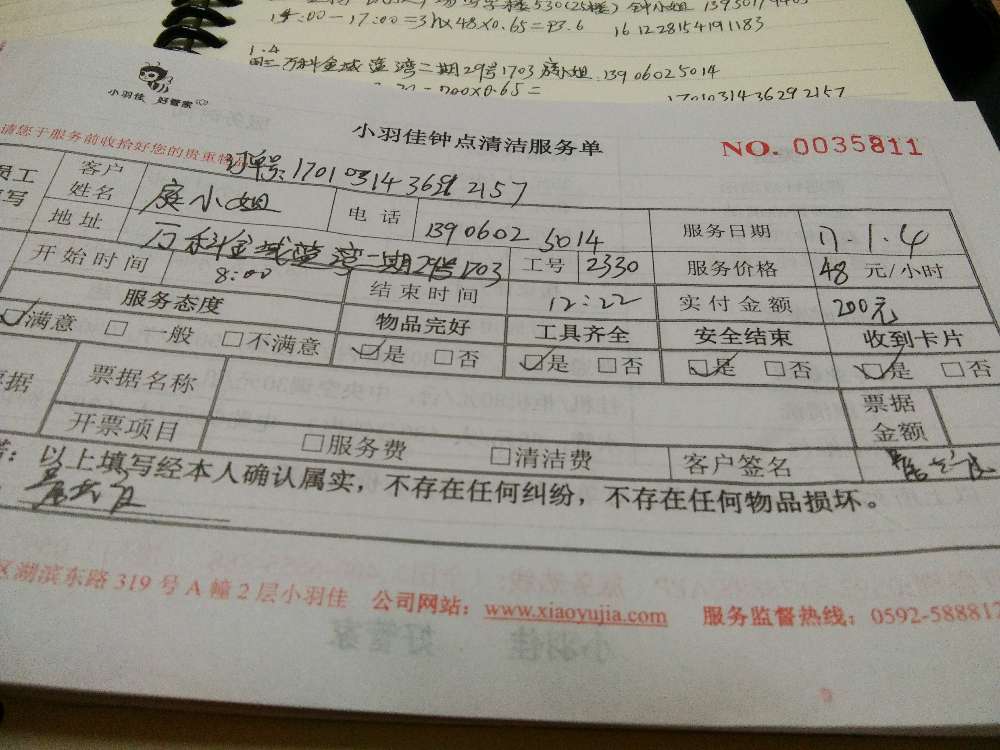 14:00-17:00=3h×48×0.65=93.6 1612281541911183
1.4
万科金域蓝湾二期29号1703 13906025014
200×0.65= 1701031436292157
小羽佳 好管家
小羽佳钟点清洁服务单 NO. 0035811
请您于服务前收拾好您的贵重物
员工 客户姓名 小姐 订单号:
电话 13906025014 服务日期 17.1.4
地址 万科金域蓝湾二期29号1703 工号 2330 服务价格 48 元/小时
开始时间 8:00 结束时间 12:22 实付金额 200元
服务态度 物品完好 工具齐全 安全结束 收到卡片
☑满意 □一般 □不满意 ☑是 □否 ☑是 □否 ☑是 □否 ☑是 □否
票据名称 票据金额
开票项目 □服务费 □清洁费 客户签名
以上填写经本人确认属实，不存在任何纠纷，不存在任何物品损坏。
区湖滨东路 319 号 A 幢 2 层小羽佳 公司网站：www.xiaoyujia.com 服务监督热线：0592-588812